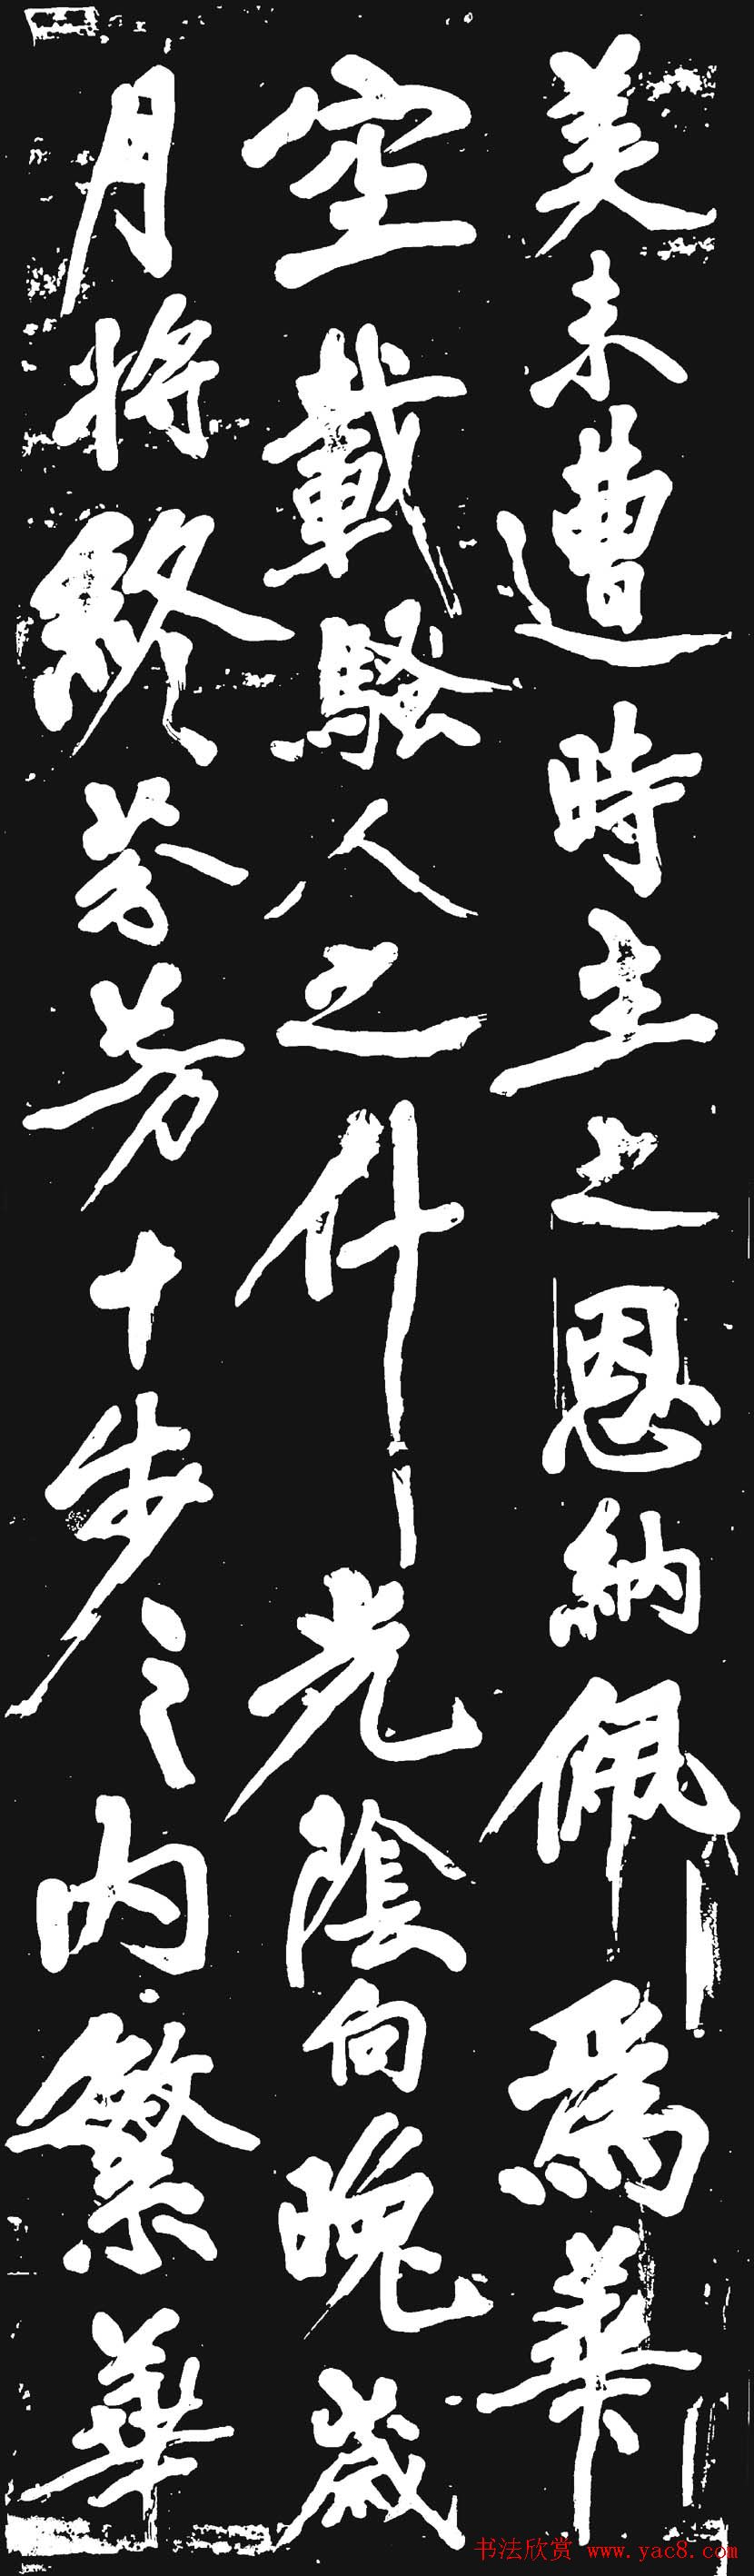 美未遭時主之恩納佩為華
空載騷人之什光陰向晚歲
月將終芬芳十步之內繁華
书法欣赏 www.yac8.com